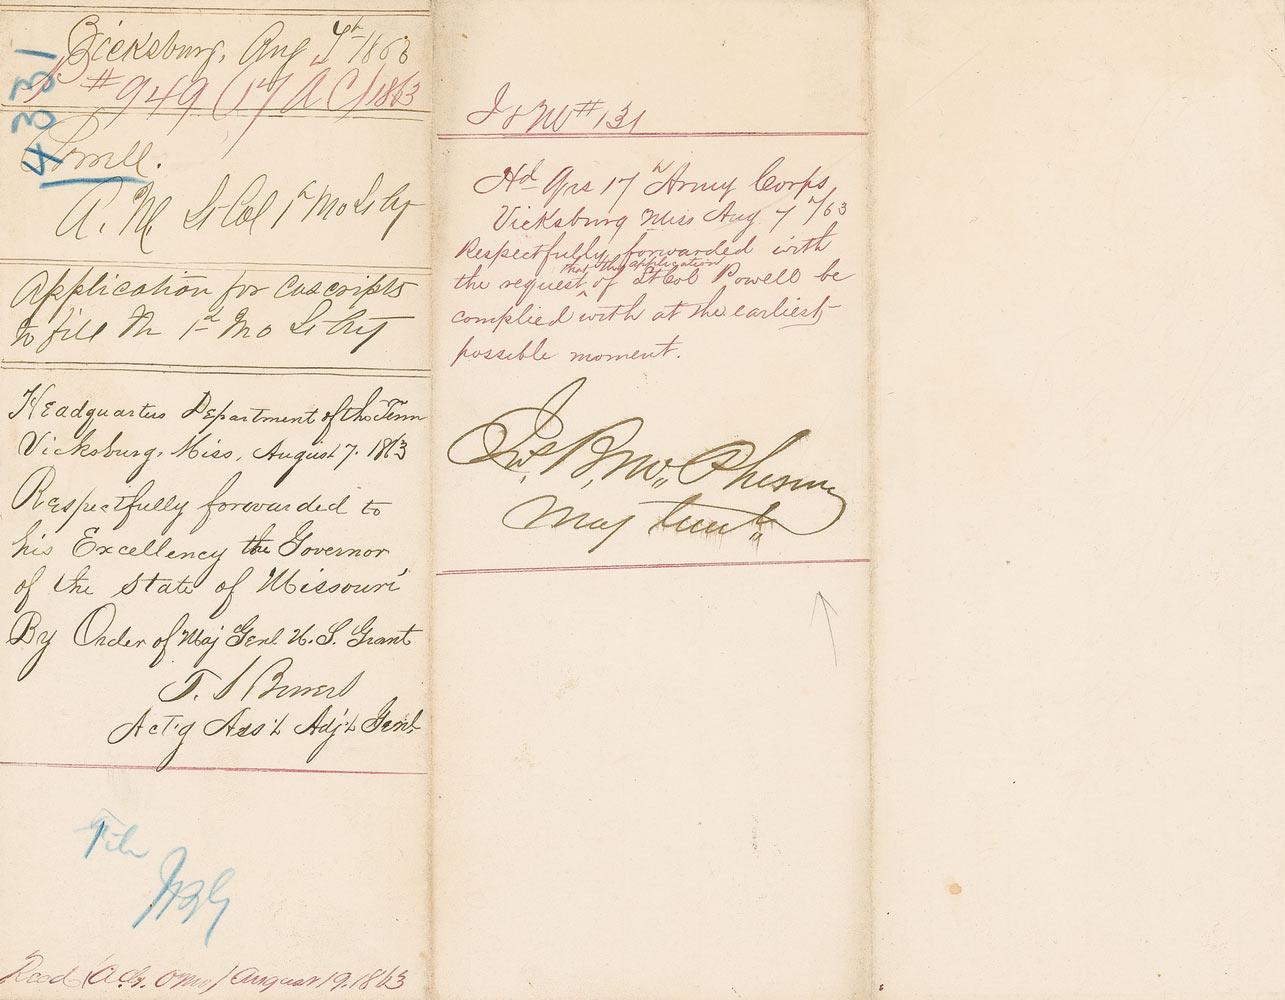 Vicksburg, Aug 7th 1863
P #949 (17 A C) 1863
4331
Powell.
A. M. Lt Col 1st Mo Lt Arty
Application for Conscripts
to fill the 1st Mo Lt Arty
Headquarters Department of the Tenn
Vicksburg, Miss, August 7. 1863
Respectfully forwarded to
his Excellency the Governor
of the State of Missouri
By Order of Maj Genl U. S. Grant
T. S Bowers
Act'g Ass't Adj't Genl
File
JBG
Recd (A.G. O Mo) August 19. 1863
I & M #131
Hd Qrs 17th Army Corps,
Vicksburg Miss Aug 7 /63
Respectfully forwarded with
the request that the application of Lt Col Powell be
complied with at the earliest
possible moment.
Jas. B. McPherson
Maj Genl